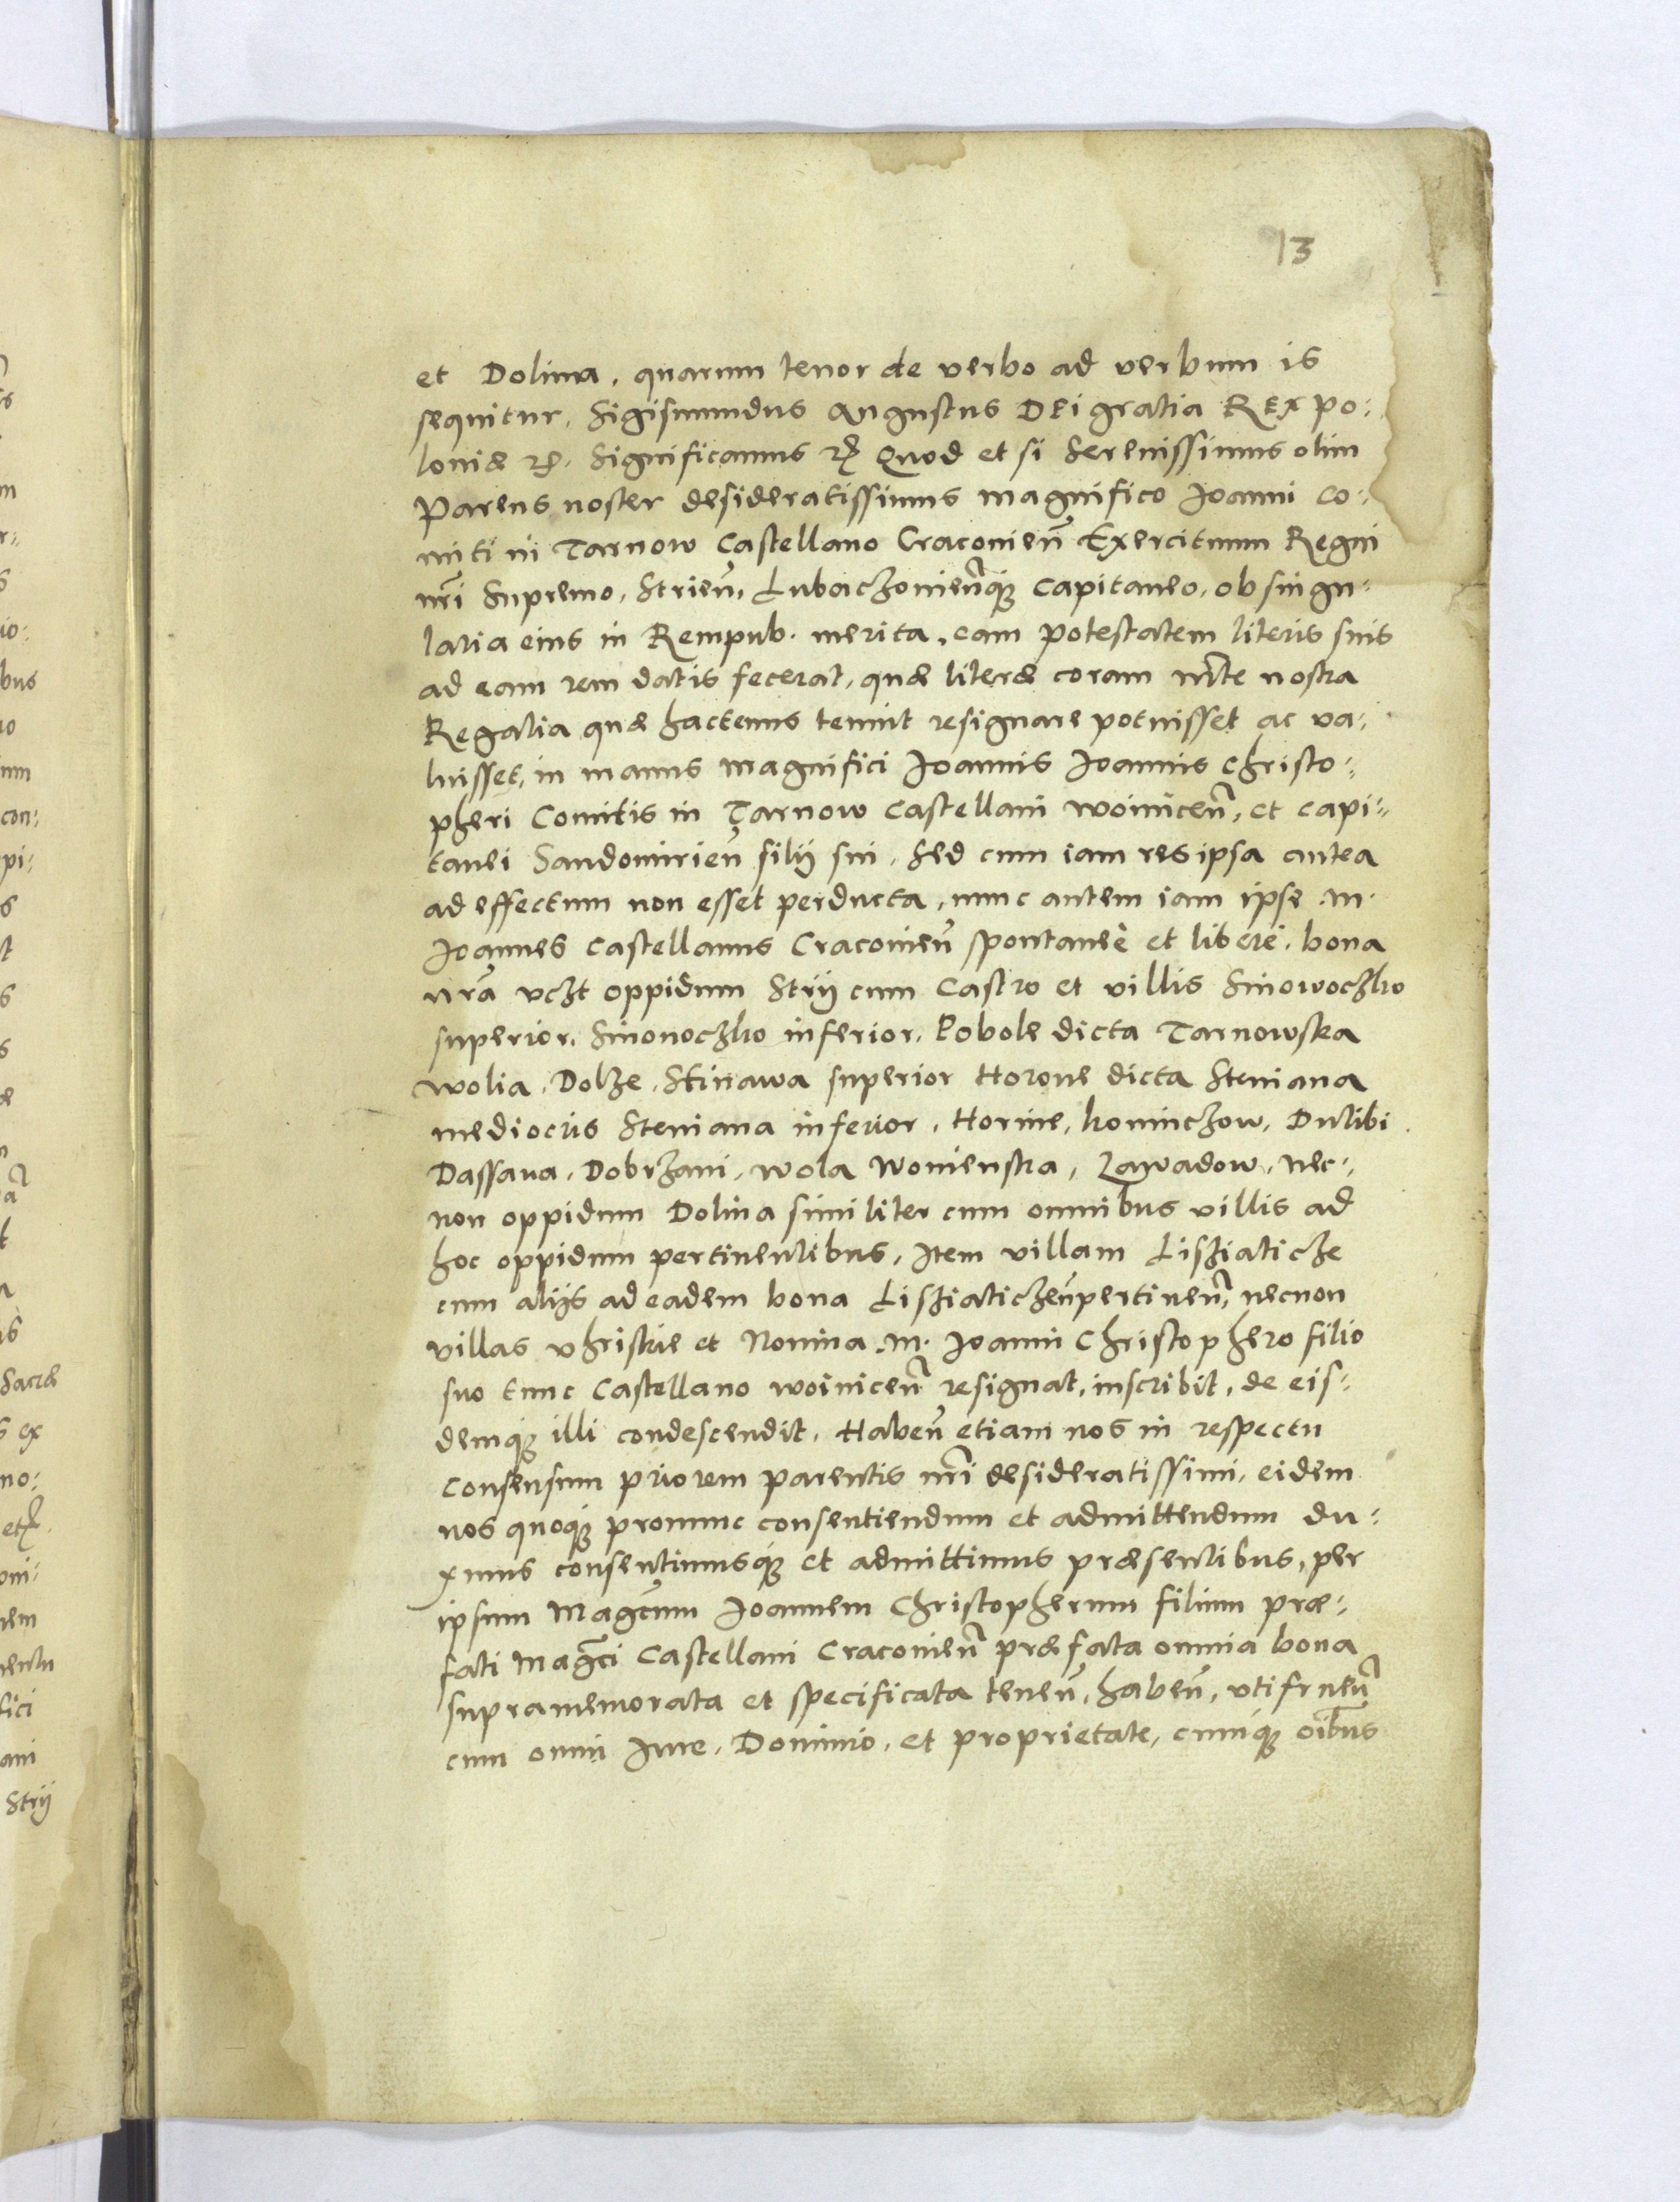 13
et Dolina, quarum tenor de verbo ad verbum is
sequitur. Sigismundus Augustus DEi gratia REX po:
loniæ etc. Significamus etc. Quod et si Serenissimus olim
Parens noster desideratissimus magnifico Joanni co:
miti in Tarnow Castellano Cracovien̄ Exercituum Regni
nr̄i Supremo, Strien̄, Lubaczovien̄q; Capitaneo, ob singu:
laria eius in Rempub. merita, eam potestatem literis suis
ad eam rem datis fecerat, quæ literæ coram mt̄e nostra
Regalia quæ hactenus tenuit resignare potuisset ac va:
luisset, in manus magnifici Joannis Joannis Christo:
pheri Comitis in Tarnow Castellani woinicen̄, et capi:
tanei Sandomirien̄ filij sui, Sed cum iam res ipsa antea
ad effectum non esset perducta, nunc autem iam ipse .m.
Joannes Castellanus Cracovien̄ spontaneè et liberè, bona
nr̄a vczt oppidum Strij cum Castro et villis Sinowoczko
superior, Sinovoczko inferior, Pobole dicta Tarnowska
wolia, Dolze, Stinawa superior Horone dicta Steniana
mediocris Steniana inferior, Horine, koninczow, Dulibi
Dassava, Dobrzani, wola wonienska, Zawadow, nec:
non oppidum Dolina similiter cum omnibus villis ad
hoc oppidum pertinentibus, Item villam Lisziaticze
cum alijs ad eadem bona Lisziaticzen̄ pertinen̄, necnon
villas vhriskie et Nonina .m. Joanni Christophero filio
suo tunc Castellano woinicen̄ resignat, inscribit, de eis:
demq; illi condescendit. Haben̄ etiam nos in respectu
consensum priorem parentis nr̄i desideratissimi, eidem
nos quoq; pronunc consentiendum et admittendum du:
ximus consentimusq; et admittimus præsentibus, per
ipsum Magc̄um Joannem Christopherum filium præ:
fati Magc̄i Castellani Cracovien̄ præfata omnia bona
supramemorata et specificata tenen̄, haben̄, vtifruen̄
cum omni Jure, Dominio, et proprietate, cumq; oībus